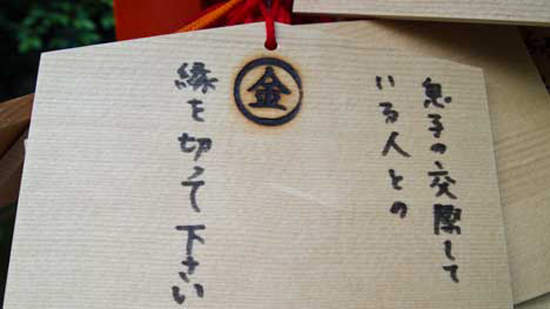 金
息子の交際して
いる人との
縁を切って下さい